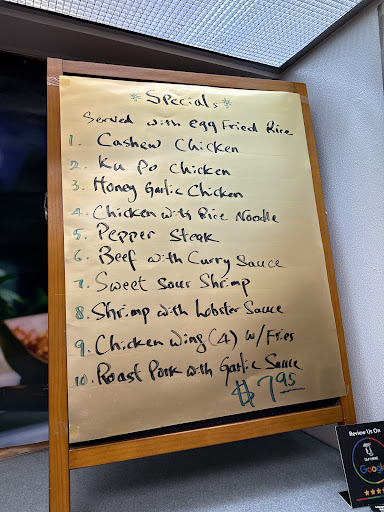 *Specials*
Served with egg Fried Rice
1. Cashew Chicken
2. Ku Po Chicken
3. Honey Garlic Chicken
4. Chicken with Rice Noodle
5. Pepper Steak
6. Beef with Curry Sauce
7. Sweet Sour Shrimp
8. Shrimp with Lobster Sauce
9. Chicken Wing (4) w/ Fries
10. Roast Pork with Garlic Sauce
$7.95
Review Us On
TAP HERE
Google